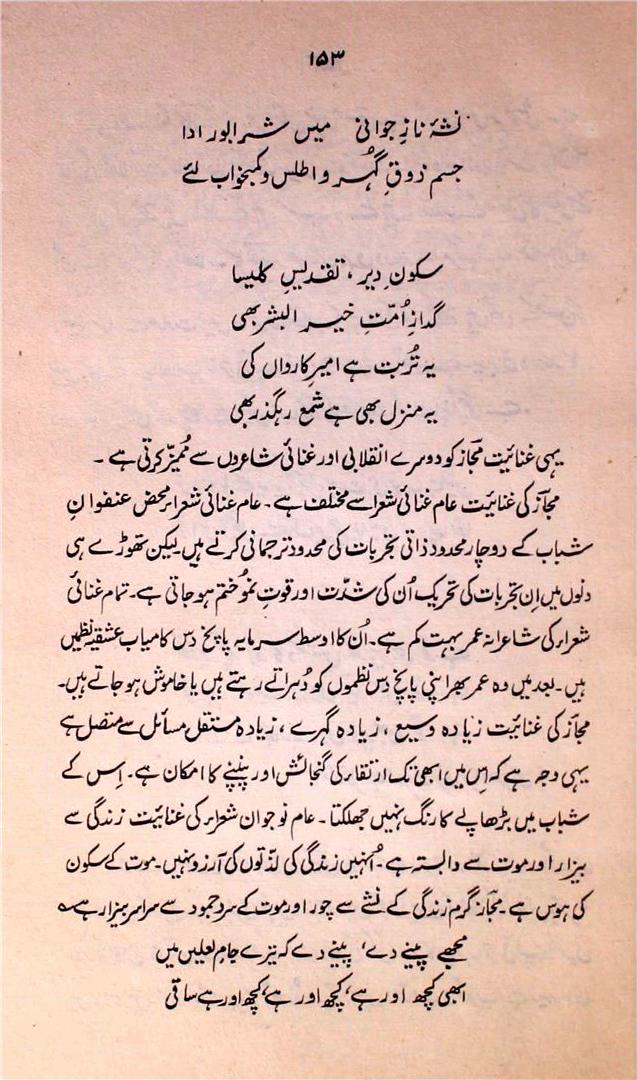 ۱۵۳
نشۂ نازِ جوانی میں شرابور ادا
جسم ذوقِ گہُر و اطلس و کمخواب لئے
سکونِ دیر، تقدیسِ کلیسا
گدازِ اُمّتِ خیر البشر بھی
یہ تُربت ہے امیرِ کارواں کی
یہ منزل بھی ہے شمع رہگذر بھی
یہی غنائیت مجاز کو دوسرے انقلابی اور غنائی شاعروں سے مُمیّز کرتی ہے۔
مجاز کی غنائیت عام غنائی شعرا سے مختلف ہے۔ عام غنائی شعراء محض عنفوانِ
شباب کے دو چار محدود ذاتی تجربات کی محدود ترجمانی کرتے ہیں لیکن تھوڑے ہی
دنوں میں اِن تجربات کی تحریک اُن کی شدّت اور قوتِ نمو ختم ہو جاتی ہے۔ تمام غنائی
شعراء کی شاعرانہ عمر بہت کم ہے۔ اُن کا اوسط سرمایہ پانچ دس کامیاب عشقیہ نظمیں
ہیں۔ بعد میں وہ عمر بھر اپنی پانچ دس نظموں کو دُہراتے رہتے ہیں یا خاموش ہو جاتے ہیں۔
مجاز کی غنائیت زیادہ وسیع، زیادہ گہرے، زیادہ مستقل مسائل سے متصل ہے
یہی وجہ ہے کہ اِس میں ابھی تک ارتقاء کی گنجائش اور پنپنے کا امکان ہے۔ اِس کے
شباب میں بڑھاپے کا رنگ نہیں جھلکتا۔ عام نوجوان شعراء کی غنائیت زندگی سے
بیزار اور موت سے وابستہ ہے۔ اُنہیں زندگی کی لذّتوں کی آرزو نہیں۔ موت کے سکون
کی ہوس ہے۔ مجاز گرم زندگی کے نشے سے چور اور موت کے سرد جمود سے سراسر بیزار ہے؎
مجھے پینے دے، پینے دے کہ تیرے جامِ لعلیں میں
ابھی کچھ اور ہے، کچھ اور ہے، کچھ اور ہے ساقی